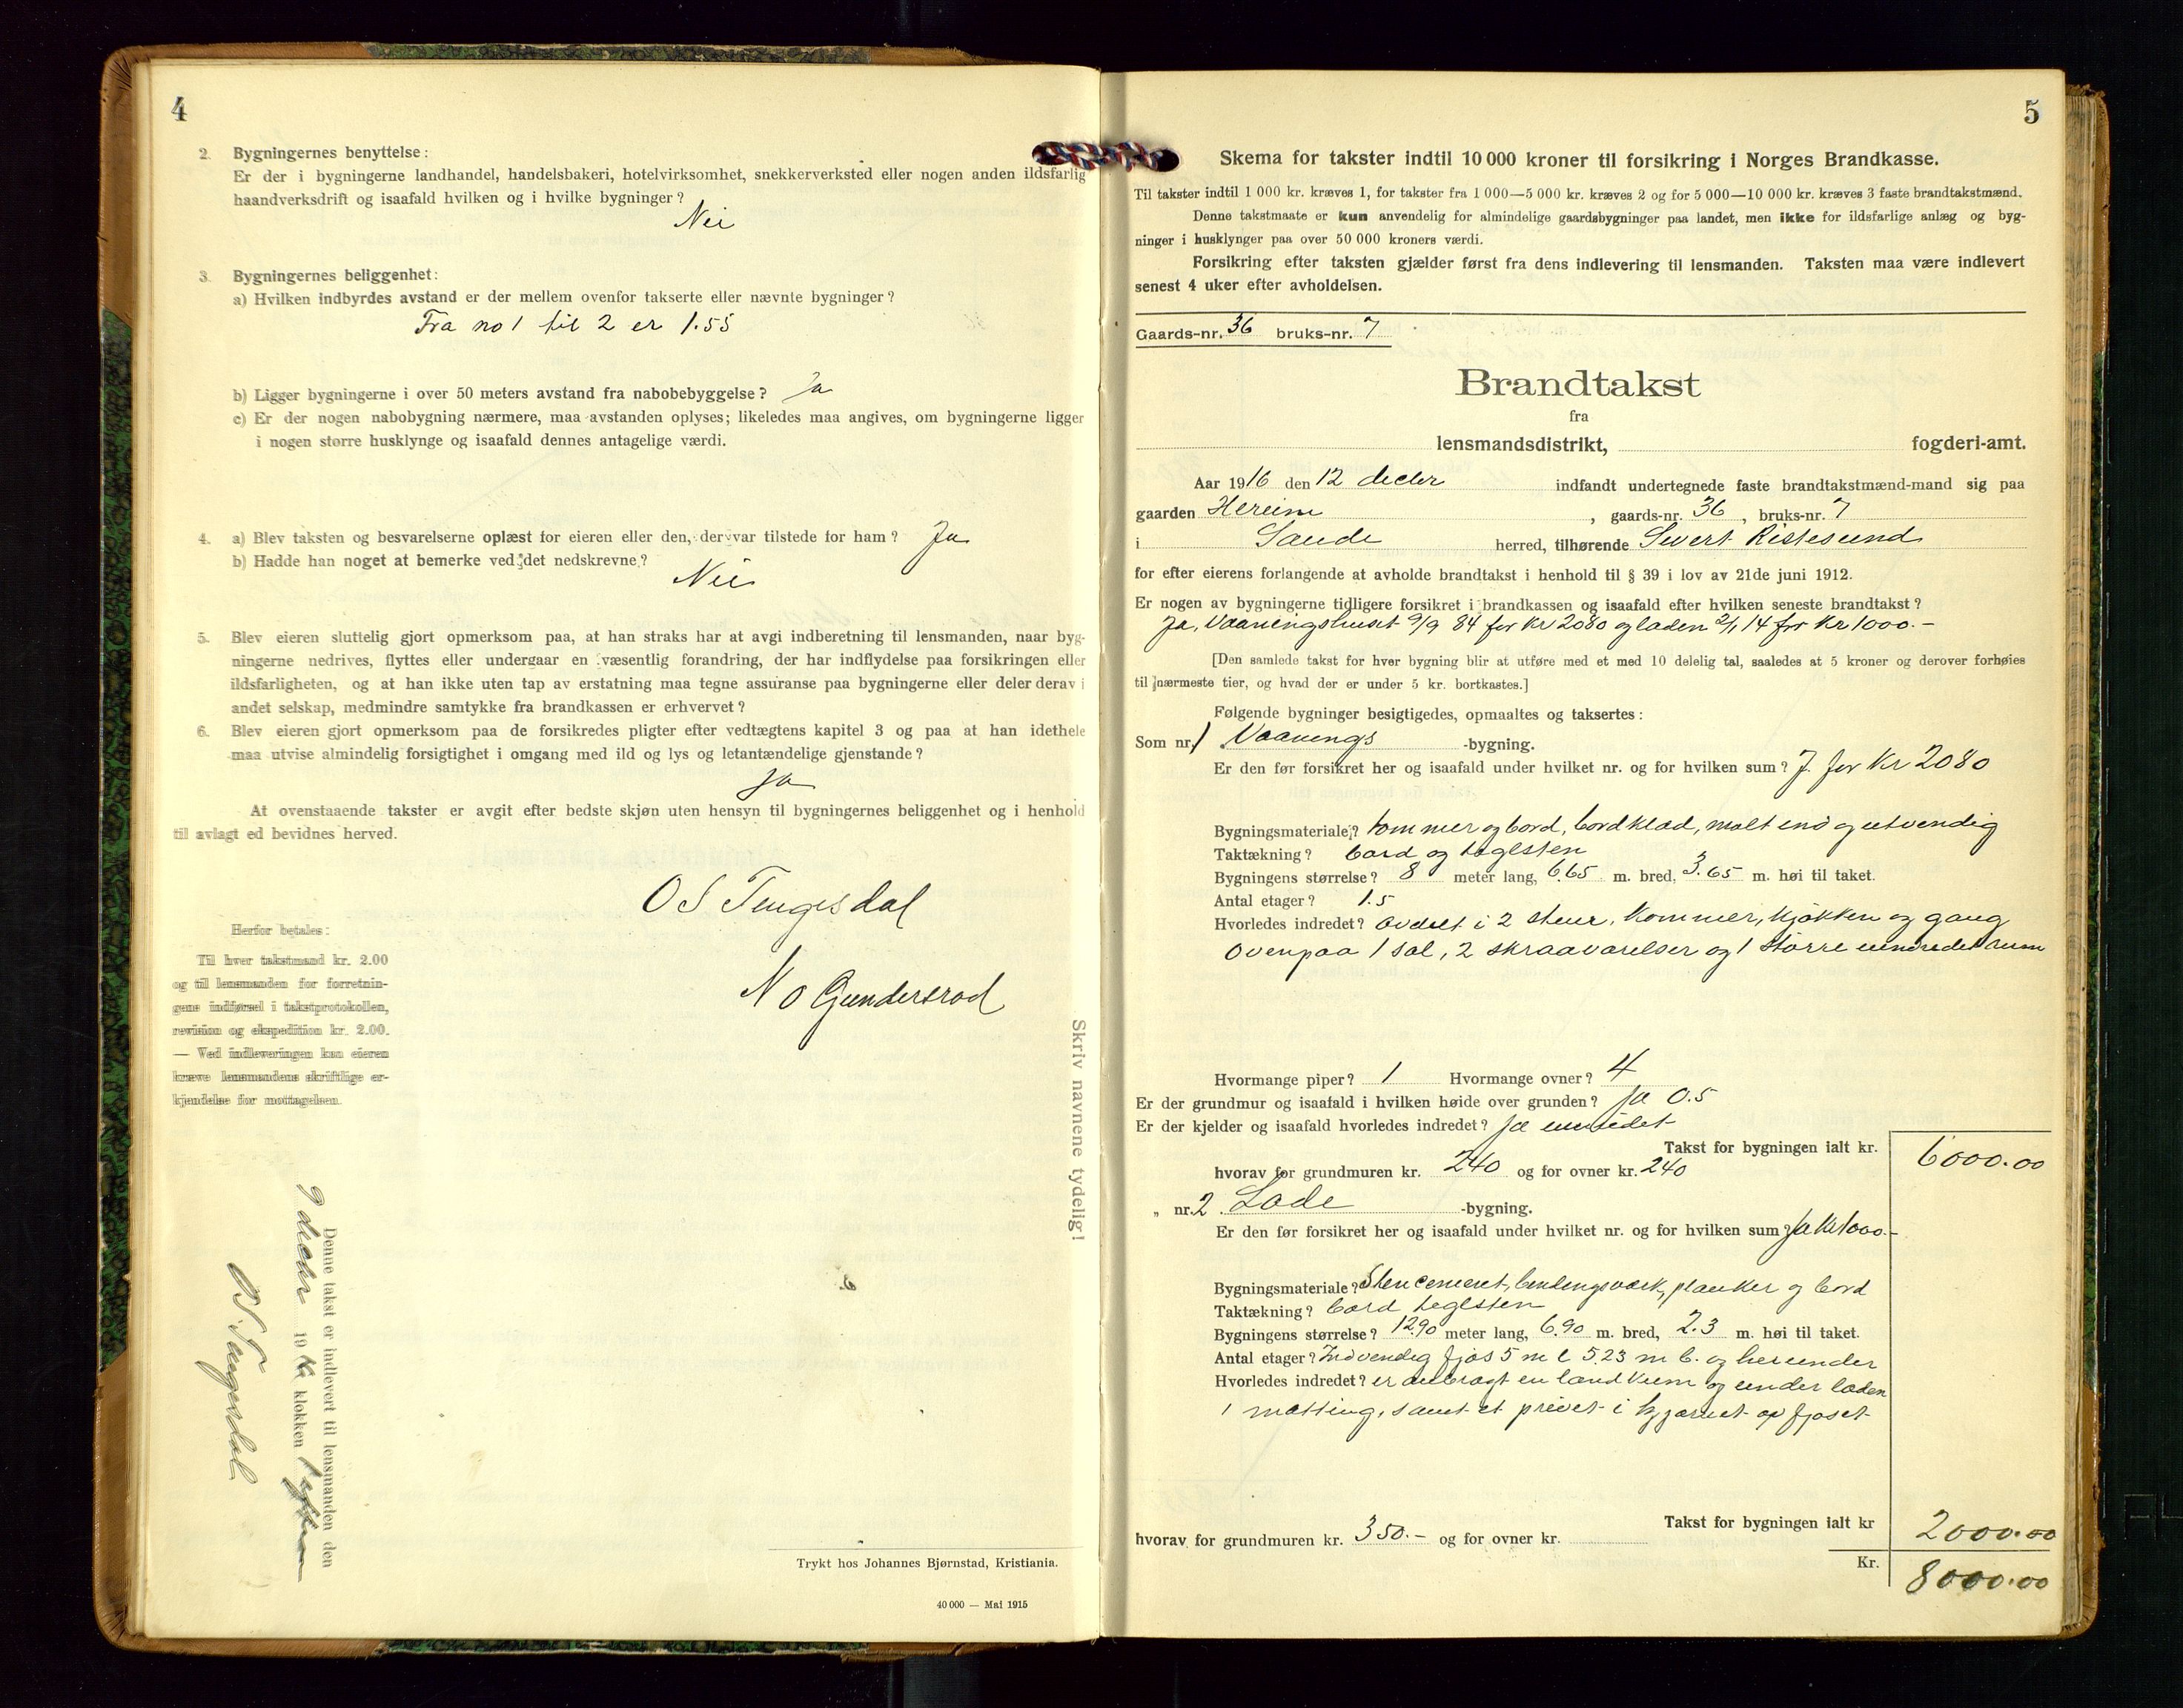 4
2. Bygningernes benyttelse:
Er der i bygningerne landhandel, handelsbakeri, hotelvirksomhet, snekkerverksted eller nogen anden ildsfarlig
haandverksdrift og isaafald hvilken og i hvilke bygninger?
Nei
3. Bygningernes beliggenhet:
a) Hvilken indbyrdes avstand er der mellem ovenfor takserte eller nævnte bygninger?
Fra no 1 til 2 er 1.55
b) Ligger bygningerne i over 50 meters avstand fra nabobebyggelse? Ja
c) Er der nogen nabobygning nærmere, maa avstanden oplyses; likeledes maa angives, om bygningerne ligger
i nogen større husklynge og isaafald dennes antagelige værdi.
4. a) Blev taksten og besvarelserne oplæst for eieren eller den, der var tilstede for ham? Ja
b) Hadde han noget at bemerke ved det nedskrevne?
Nei
5. Blev eieren sluttelig gjort opmerksom paa, at han straks har at avgi indberetning til lensmanden, naar byg-
ningerne nedrives, flyttes eller undergaar en væsentlig forandring, der har indflydelse paa forsikringen eller
ildsfarligheten, og at han ikke uten tap av erstatning maa tegne assuranse paa bygningerne eller deler derav i
andet selskap, medmindre samtykke fra brandkassen er erhvervet?
6. Blev eieren gjort opmerksom paa de forsikredes pligter efter vedtægtens kapitel 3 og paa at han idethele
maa utvise almindelig forsigtighet i omgang med ild og lys og letantændelige gjenstande?
Ja
At ovenstaaende takster er avgit efter bedste skjøn uten hensyn til bygningernes beliggenhet og i henhold
til avlagt ed bevidnes herved.
O S Tengesdal
N O Gundersrod
Herfor betales:
Til hver takstmand kr. 2.00
og til lensmanden for forretnin-
gens indførsel i takstprotokollen,
revision og ekspedition kr. 2.00.
— Ved indleveringen kan eieren
kræve lensmandens skriftlige er-
kjendelse for mottagelsen.
Skriv navnene tydelig!
Denne takst er indlevert til lensmanden den
9 decbr 1916 klokken
O S Tengesdal
Trykt hos Johannes Bjørnstad, Kristiania.
40 000 — Mai 1915
5
Skema for takster indtil 10 000 kroner til forsikring i Norges Brandkasse.
Til takster indtil 1 000 kr. kræves 1, for takster fra 1 000—5 000 kr. kræves 2 og for 5 000—10 000 kr. kræves 3 faste brandtakstmænd.
Denne takstmaate er kun anvendelig for almindelige gaardsbygninger paa landet, men ikke for ildsfarlige anlæg og byg-
ninger i husklynger paa over 50 000 kroners værdi.
Forsikring efter taksten gjælder først fra dens indlevering til lensmanden. Taksten maa være indlevert
senest 4 uker efter avholdelsen.
Gaards-nr. 36 bruks-nr. 7
Brandtakst
fra
lensmandsdistrikt, fogderi-amt.
Aar 1916 den 12 decbr indfandt undertegnede faste brandtakstmænd-mand sig paa
gaarden Hereim, gaards-nr. 36, bruks-nr. 7
i Saude herred, tilhørende Sivert Ristesund
for efter eierens forlangende at avholde brandtakst i henhold til § 39 i lov av 21de juni 1912.
Er nogen av bygningerne tidligere forsikret i brandkassen og isaafald efter hvilken seneste brandtakst?
Ja, Vaaningshuset 9/9 84 for Kr 2080 og laden 2/1 14 for Kr 1000.-
[Den samlede takst for hver bygning blir at utføre med et med 10 delelig tal, saaledes at 5 kroner og derover forhøies
til nærmeste tier, og hvad der er under 5 kr. bortkastes.]
Følgende bygninger besigtigedes, opmaaltes og taksertes:
Som nr. 1 Vaanings -bygning.
Er den før forsikret her og isaafald under hvilket nr. og for hvilken sum? J. for Kr 2080
Bygningsmateriale? tømmer og bord, bordklæd, malt ind og utvendig
Taktækning? bord og teglsten
Bygningens størrelse? 8 meter lang, 6.65 m. bred, 3.65 m. høi til taket.
Antal etager? 1.5
Hvorledes indredet? avdelt i 2 stuer, kammer, kjøkken og gang
ovenpaa 1 sal, 2 skraavarelser og 1 større uindredet rum
Hvormange piper? 1 Hvormange ovner? 4
Er der grundmur og isaafald i hvilken høide over grunden? Ja 0.5
Er der kjelder og isaafald hvorledes indredet? Ja
Takst for bygningen ialt kr. 6000.00
hvorav for grundmuren kr. 240 og for ovner kr. 240
„ nr. 2. Lade -bygning.
Er den før forsikret her og isaafald under hvilket nr. og for hvilken sum? Ja Kr 1000.-
Bygningsmateriale? Sten cement, bindingsværk, planker og bord
Taktækning? bord teglsten
Bygningens størrelse? 12.90 meter lang, 6.90 m. bred, 2.3 m. høi til taket.
Antal etager? Indvendig fjøs 5 m l 5.23 m b. og herunder
Hvorledes indredet? er anbragt en land kum og under laden
1 møtting, samt et privet i hjørnet av fjøset
Takst for bygningen ialt kr 2000.00
hvorav for grundmuren kr. 350.- og for ovner kr.
Kr. 8000.00